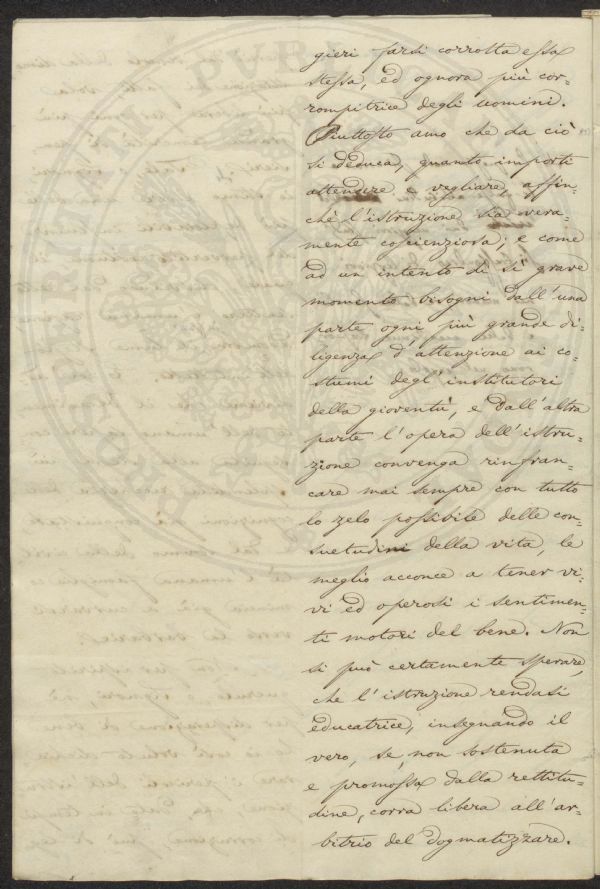 gieri farsi corrotta essa
stessa, ed ognora più cor=
rompitrice degli uomini.
Piuttosto amo che da ciò
si deduca, quanto importi
attendere e vegliare, affin=
chè l'istruzione sia vera=
mente coscienziosa; e come
ad un intento di sì grave
momento bisogni dall'una
parte ogni più grande di=
ligenza d'attenzione ai co=
stumi degl'institutori
della gioventù, e dall'altra
parte l'opera dell'istru=
zione convenga rinfran=
care mai sempre con tutto
lo zelo possibile delle con=
suetudini della vita, le
meglio acconce a tener vi=
vi ed operosi i sentimen=
ti motori del bene. Non
si può certamente sperare,
che l'istruzione rendasi
educatrice, insegnando il
vero, se, non sostenuta
e promossa dalla rettitu=
dine, corra libera all'ar=
bitrio del dogmatizzare.